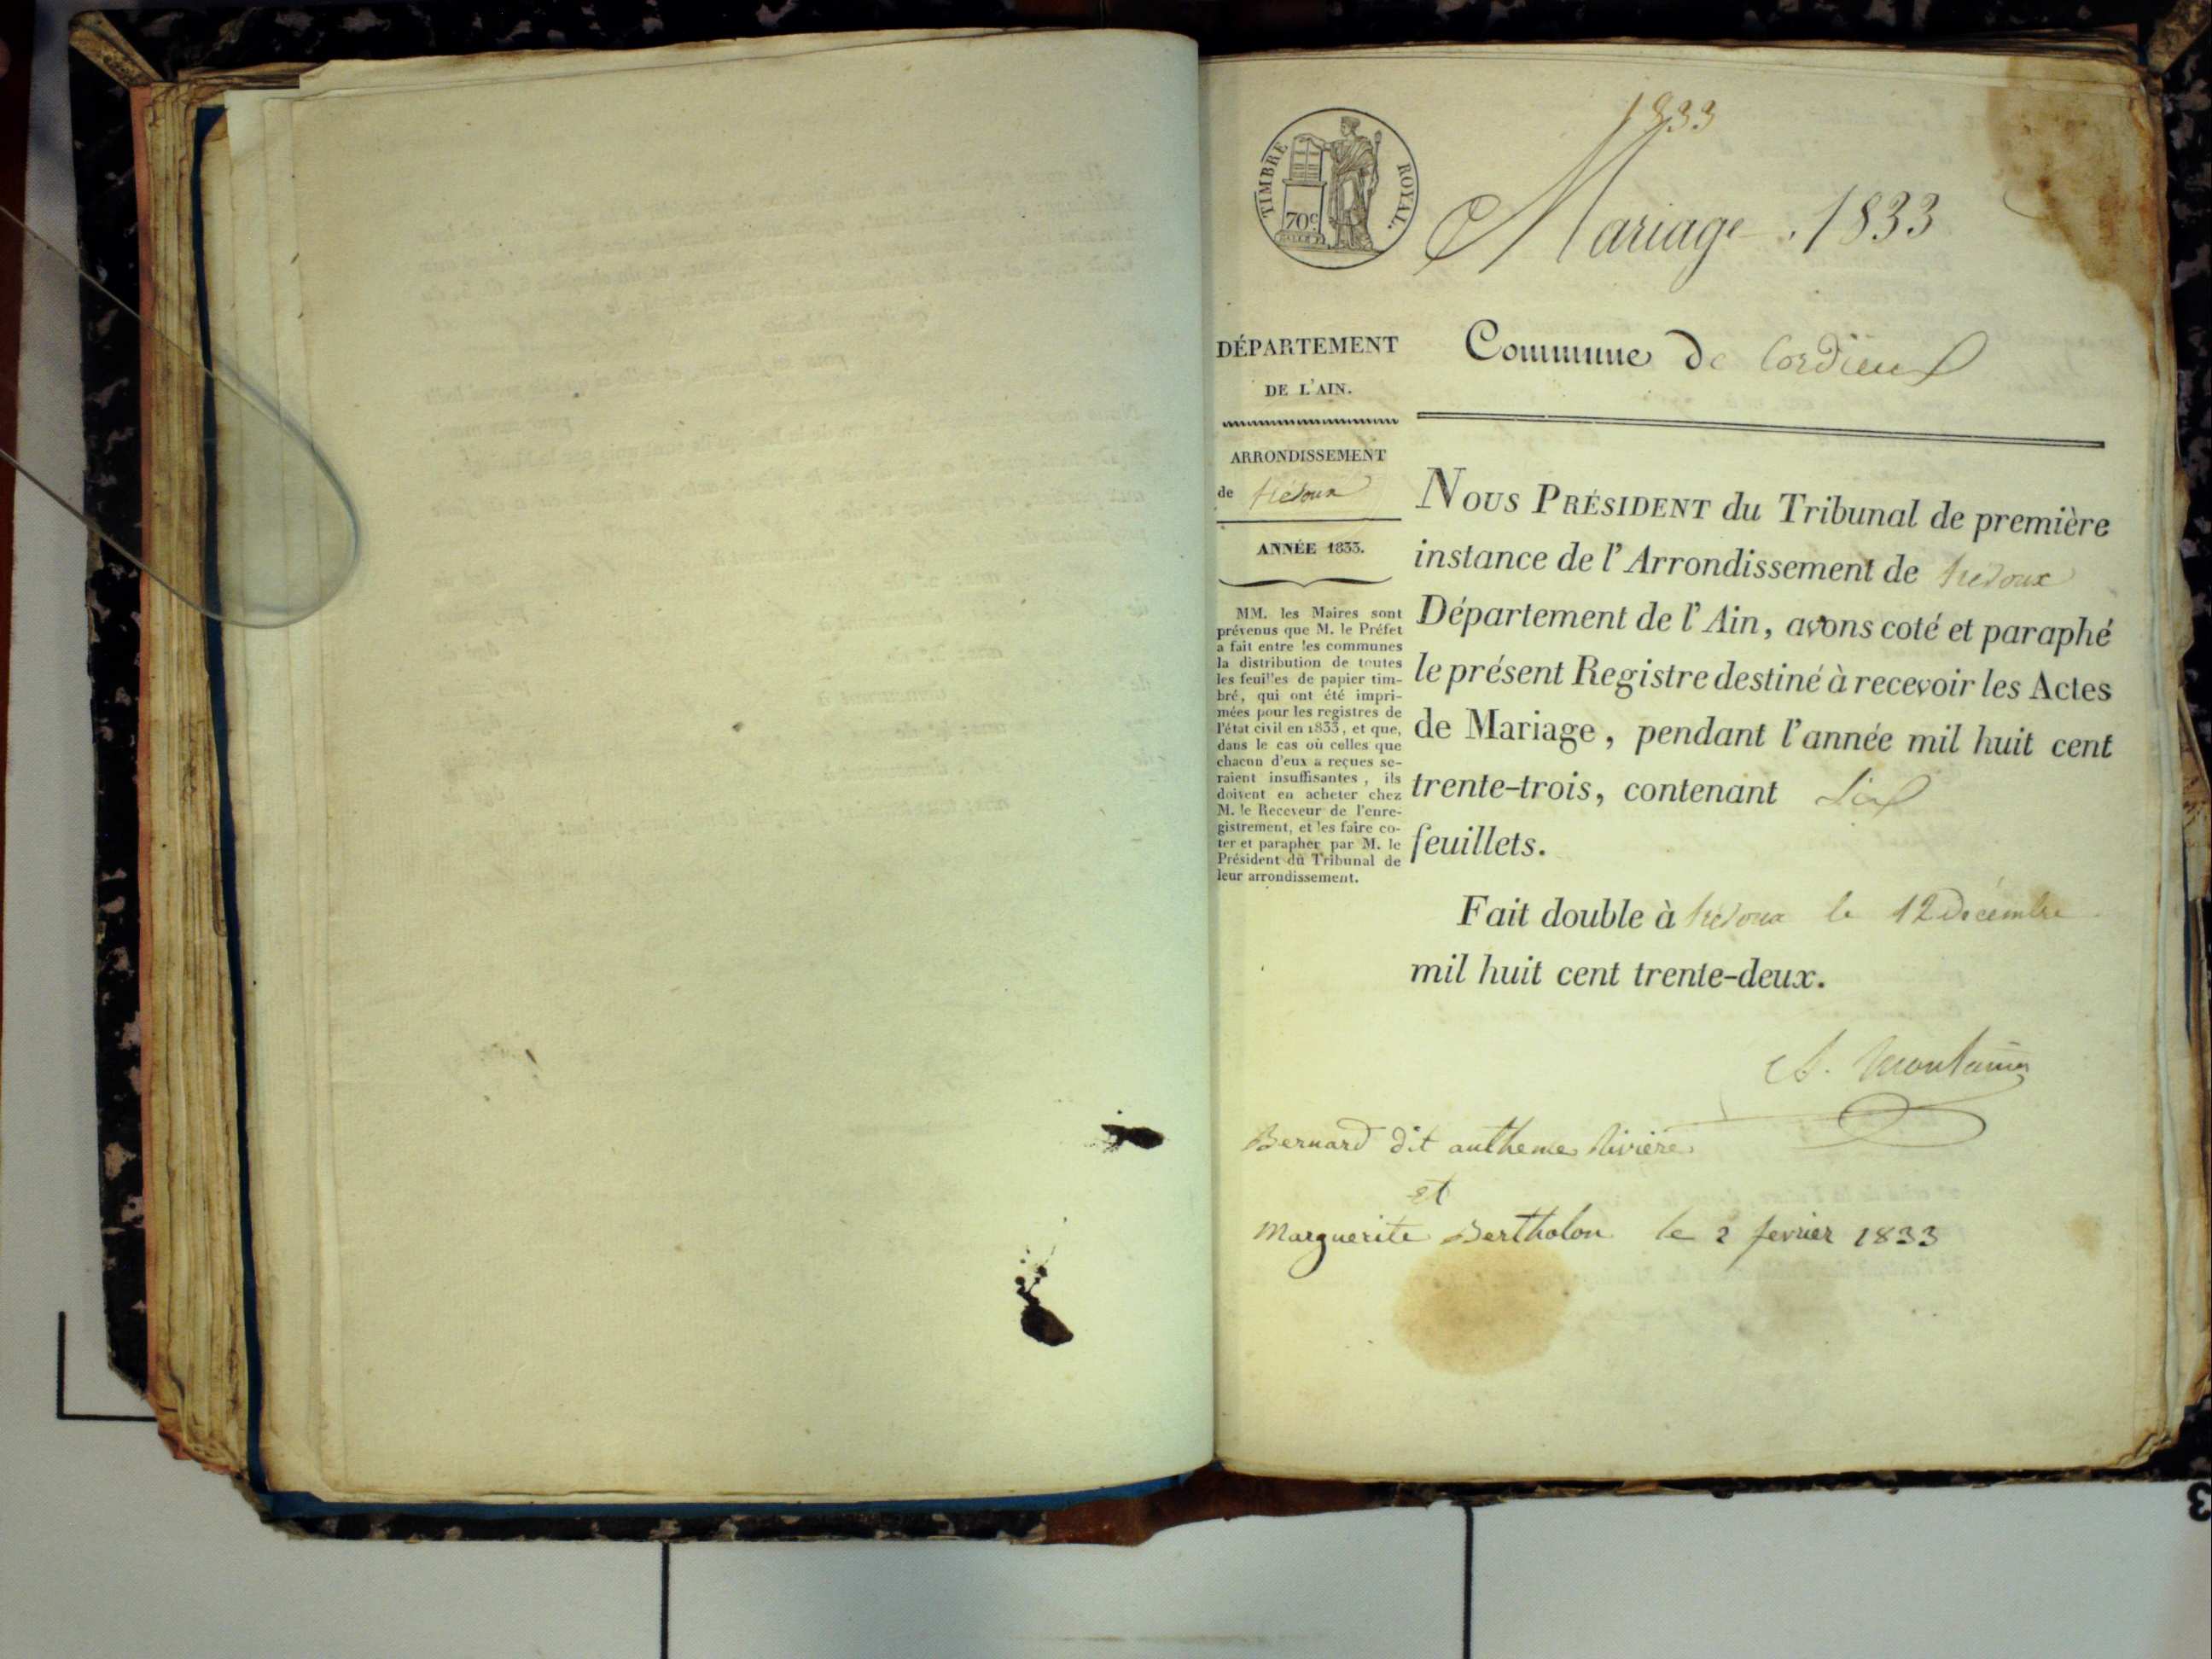 1833
TIMBRE ROYAL.
70c
Mariage. 1833
DÉPARTEMENT
DE L'AIN.
ARRONDISSEMENT
de trévoux
ANNÉE 1833.
MM. les Maires sont
prévenus que M. le Préfet
a fait entre les communes
la distribution de toutes
les feuilles de papier tim-
bré, qui ont été impri-
mées pour les registres de
l'état civil en 1833, et que,
dans le cas où celles que
chacun d'eux a reçues se-
raient insuffisantes, ils
doivent en acheter chez
M. le Receveur de l'enre-
gistrement, et les faire co-
ter et parapher par M. le
Président du Tribunal de
leur arrondissement.
Commune de Cordieux
NOUS PRÉSIDENT du Tribunal de première
instance de l'Arrondissement de trévoux
Département de l'Ain, avons coté et paraphé
le présent Registre destiné à recevoir les Actes
de Mariage, pendant l'année mil huit cent
trente-trois, contenant Six
feuillets.
Fait double à trévoux le 12 décembre
mil huit cent trente-deux.
Bernard dit antheme Rivière
et
Marguerite Bertholon le 2 fevrier 1833
3